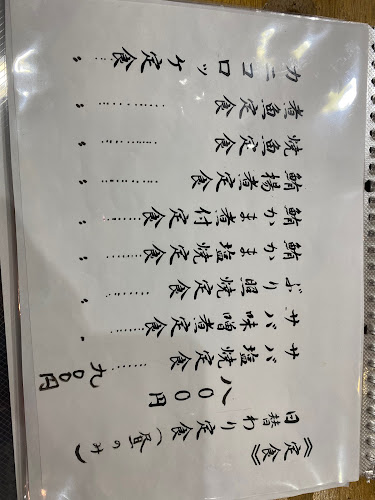 《定食》
日替わり定食(昼のみ)
八〇〇円
サバ塩焼定食……九〇〇円
サバ味噌煮定食……〃
ぶり照焼定食……〃
鮪かま塩焼定食……〃
鮪かま煮付定食……〃
鮪揚煮定食……〃
焼魚定食……〃
煮魚定食……〃
カニコロッケ定食……〃